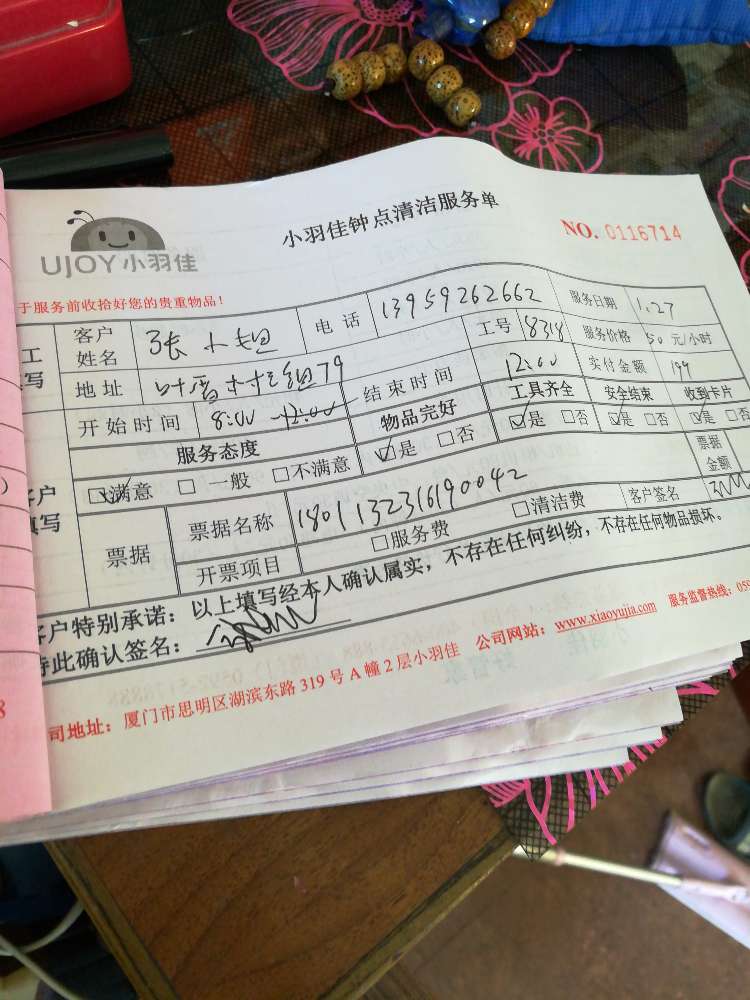 UJOY小羽佳
小羽佳钟点清洁服务单
NO. 0116714
于服务前收拾好您的贵重物品！
工
填写
客户姓名 张小姐 电话 13959262662 服务日期 1.27
地址 工号 8318 服务价格 50 元/小时
开始时间 8:00 12:00 结束时间 12:00 实付金额 199
服务态度 物品完好 工具齐全 安全结束 收到卡片
☑满意 □一般 □不满意 ☑是 □否 ☑是 □否 ☑是 □否 ☑是 □否
客户
填写
票据 票据名称 1801132316190042 票据金额
开票项目 □服务费 □清洁费 客户签名
客户特别承诺：以上填写经本人确认属实，不存在任何纠纷，不存在任何物品损坏。
特此确认签名：
司地址：厦门市思明区湖滨东路 319 号 A 幢 2 层小羽佳 公司网站：www.xiaoyujia.com 服务监督热线：059